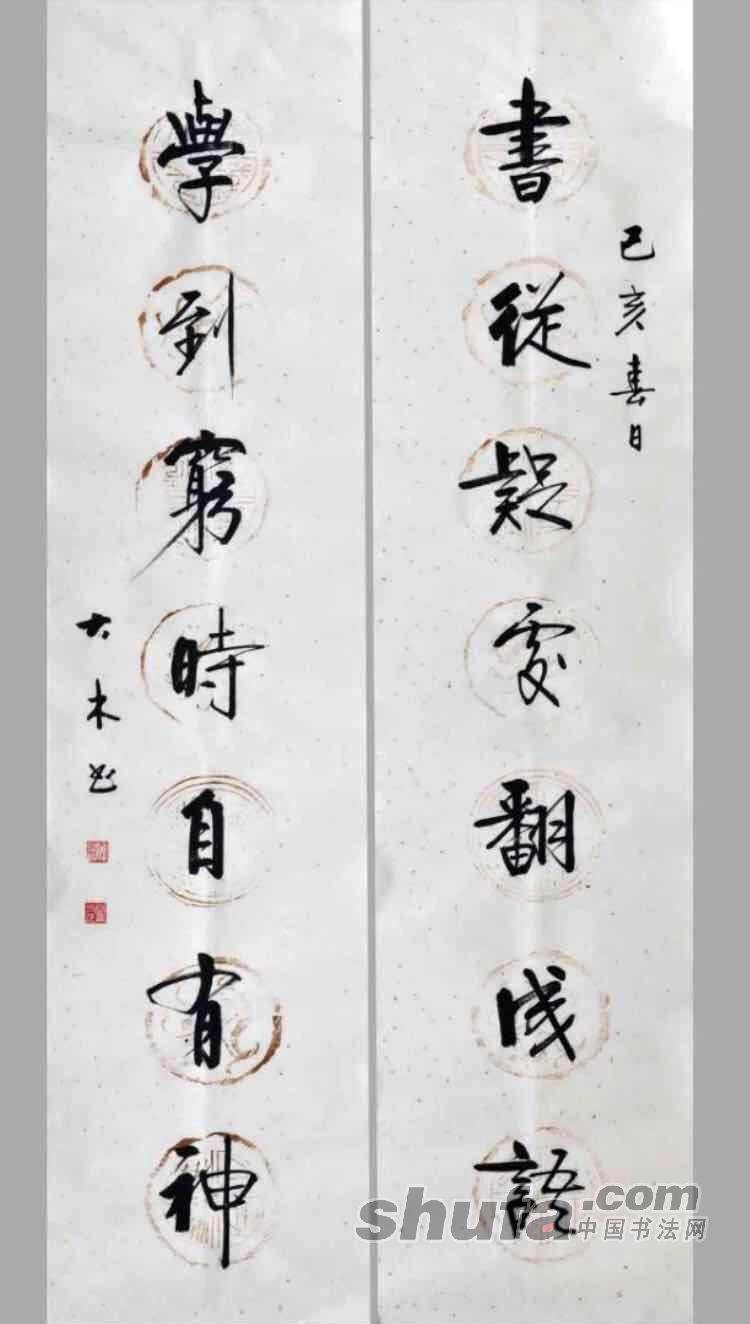 己亥春日
書從疑處翻成語
學到窮時自有神
大木书
shufa.com
中国书法网